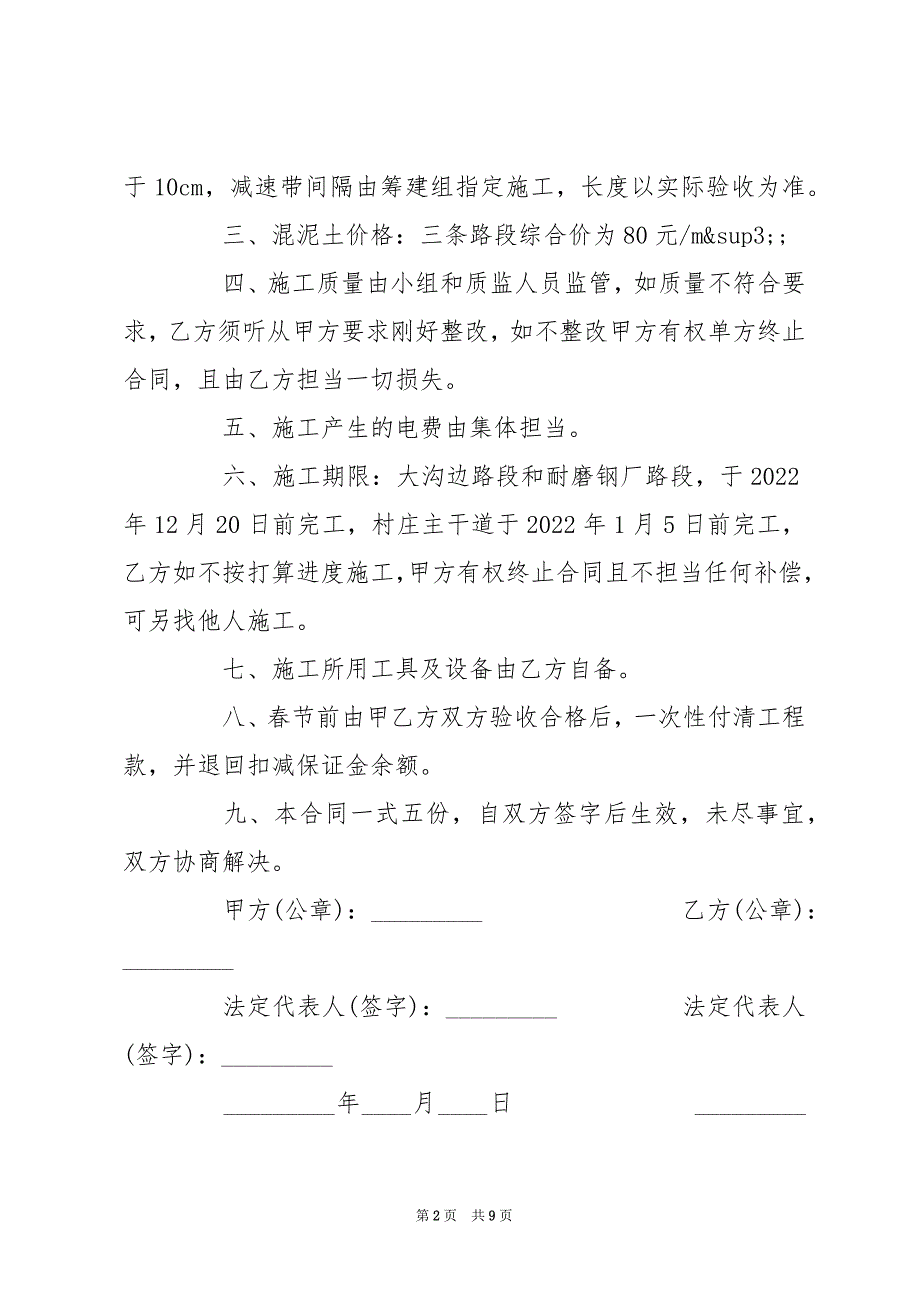 于10cm，减速带间隔由筹建组指定施工，长度以实际验收为准。
三、混泥土价格：三条路段综合价为80元/m&sup3;;
四、施工质量由小组和质监人员监管，如质量不符合要
求，乙方须听从甲方要求刚好整改，如不整改甲方有权单方终止
合同，且由乙方担当一切损失。
五、施工产生的电费由集体担当。
六、施工期限：大沟边路段和耐磨钢厂路段，于2022
年12月20日前完工，村庄主干道于2022年1月5日前完工，
乙方如不按打算进度施工，甲方有权终止合同且不担当任何补偿，
可另找他人施工。
七、施工所用工具及设备由乙方自备。
八、春节前由甲乙方双方验收合格后，一次性付清工程
款，并退回扣减保证金余额。
九、本合同一式五份，自双方签字后生效，未尽事宜，
双方协商解决。
甲方(公章)：_________ 乙方(公章)：
_________
法定代表人(签字)：_________ 法定代表人
(签字)：_________
_________年____月____日 _________
第 2 页 共 9 页